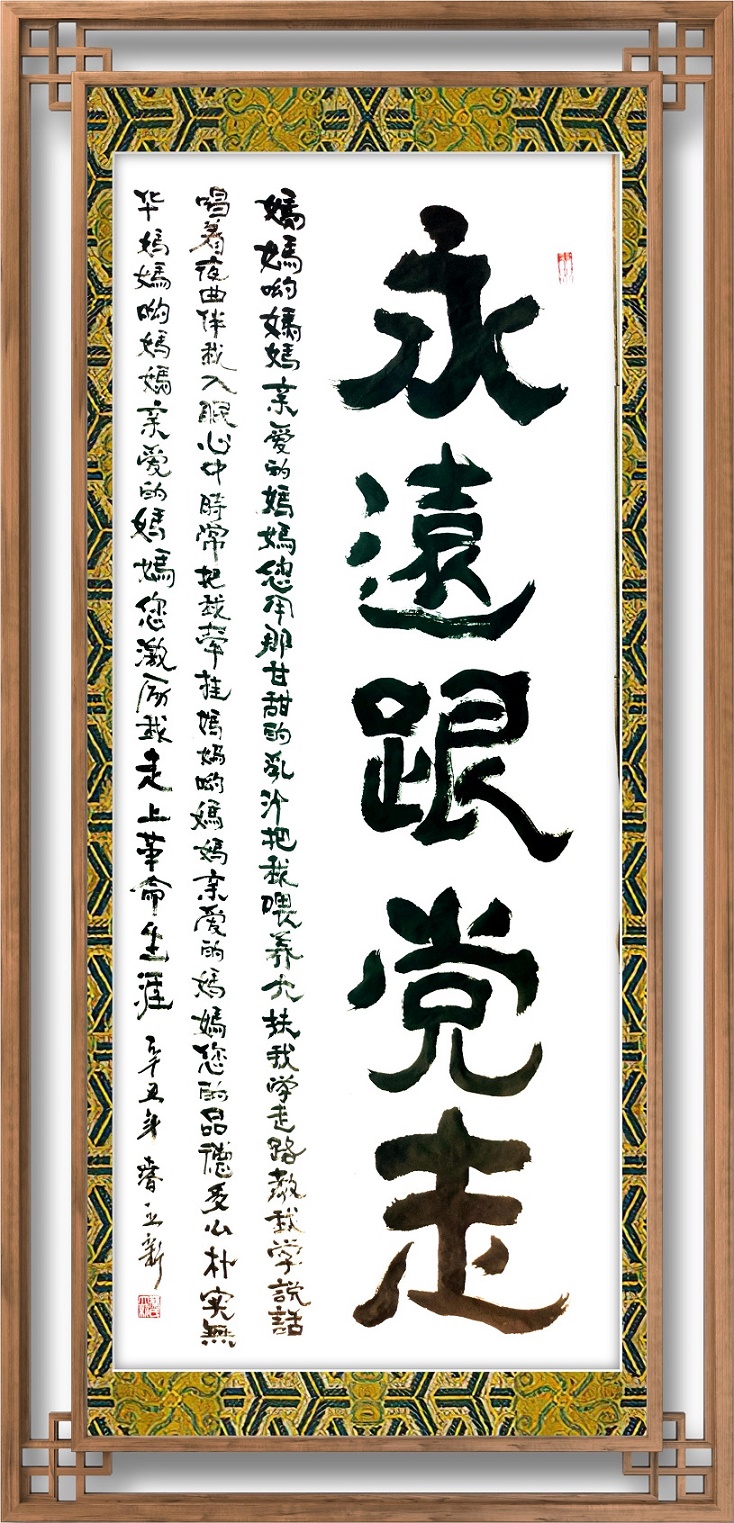 永遠跟党走
媽媽哟媽媽亲爱的媽媽您用那甘甜的乳汁把我喂养大扶我学走路教我学說話
唱着夜曲伴我入眠心中時常把我牵挂媽媽哟媽媽亲爱的媽媽您的品德多么朴实無
华媽媽哟媽媽亲爱的媽媽您激励我走上革命生涯 辛丑年春